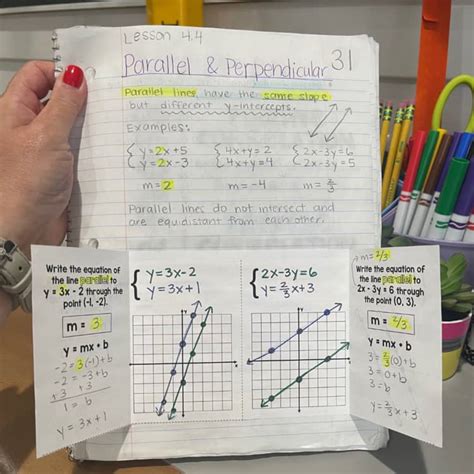 Lesson 4.4
Parallel & Perpendicular 31
Parallel lines have the same slope
but different y-intercepts.
Examples:
y=2x+5
y=2x-3
m=2
4x+y=2
4x+y=4
m=-4
2x-3y=6
2x-3y=5
m=2/3
Parallel lines do not intersect and
are equidistant from each other.
Write the equation of
the line parallel to
y = 3x - 2 through the
point (-1, -2).
m = 3
y = mx • b
-2=3(-1)+b
-2=-3+b
+3 +3
1=b
y=3x+1
y=3x-2
y=3x+1
2x-3y=6
y=2/3x+3
m=2/3
Write the equation of
the line parallel to
2x - 3y = 6 through
the point (0, 3).
m = 2/3
y = mx • b
3=2/3(0)+b
3=0+b
3=b
y=2/3x+3